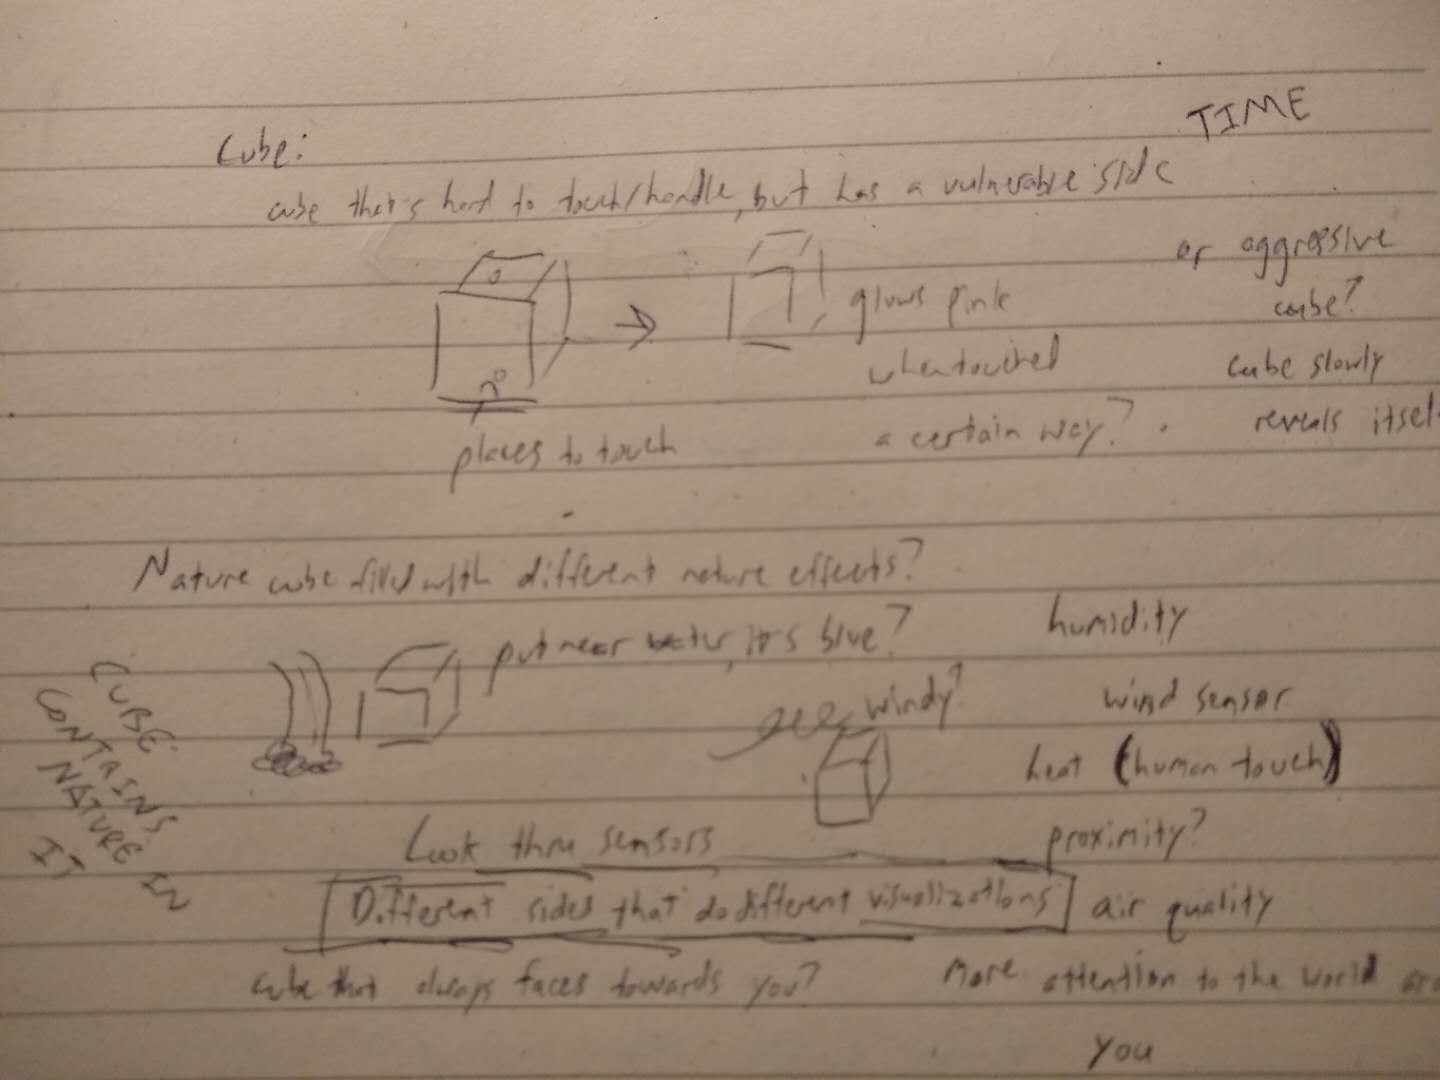 TIME
Cube:
cube that's hard to touch/handle, but has a vulnerable side
or aggressive
cube?
cube slowly
reveals itsel
glows pink
when touched
a certain way?
places to touch
Nature cube filled with different nature effects?
put near water, it's blue?
windy?
humidity
wind sensor
heat (human touch)
proximity?
air quality
CUBE
CONTAINS
NATURE IN
IT
Look thru sensors
Different sides that do different visualizations
cube that always faces towards you?
more attention to the world aro
you